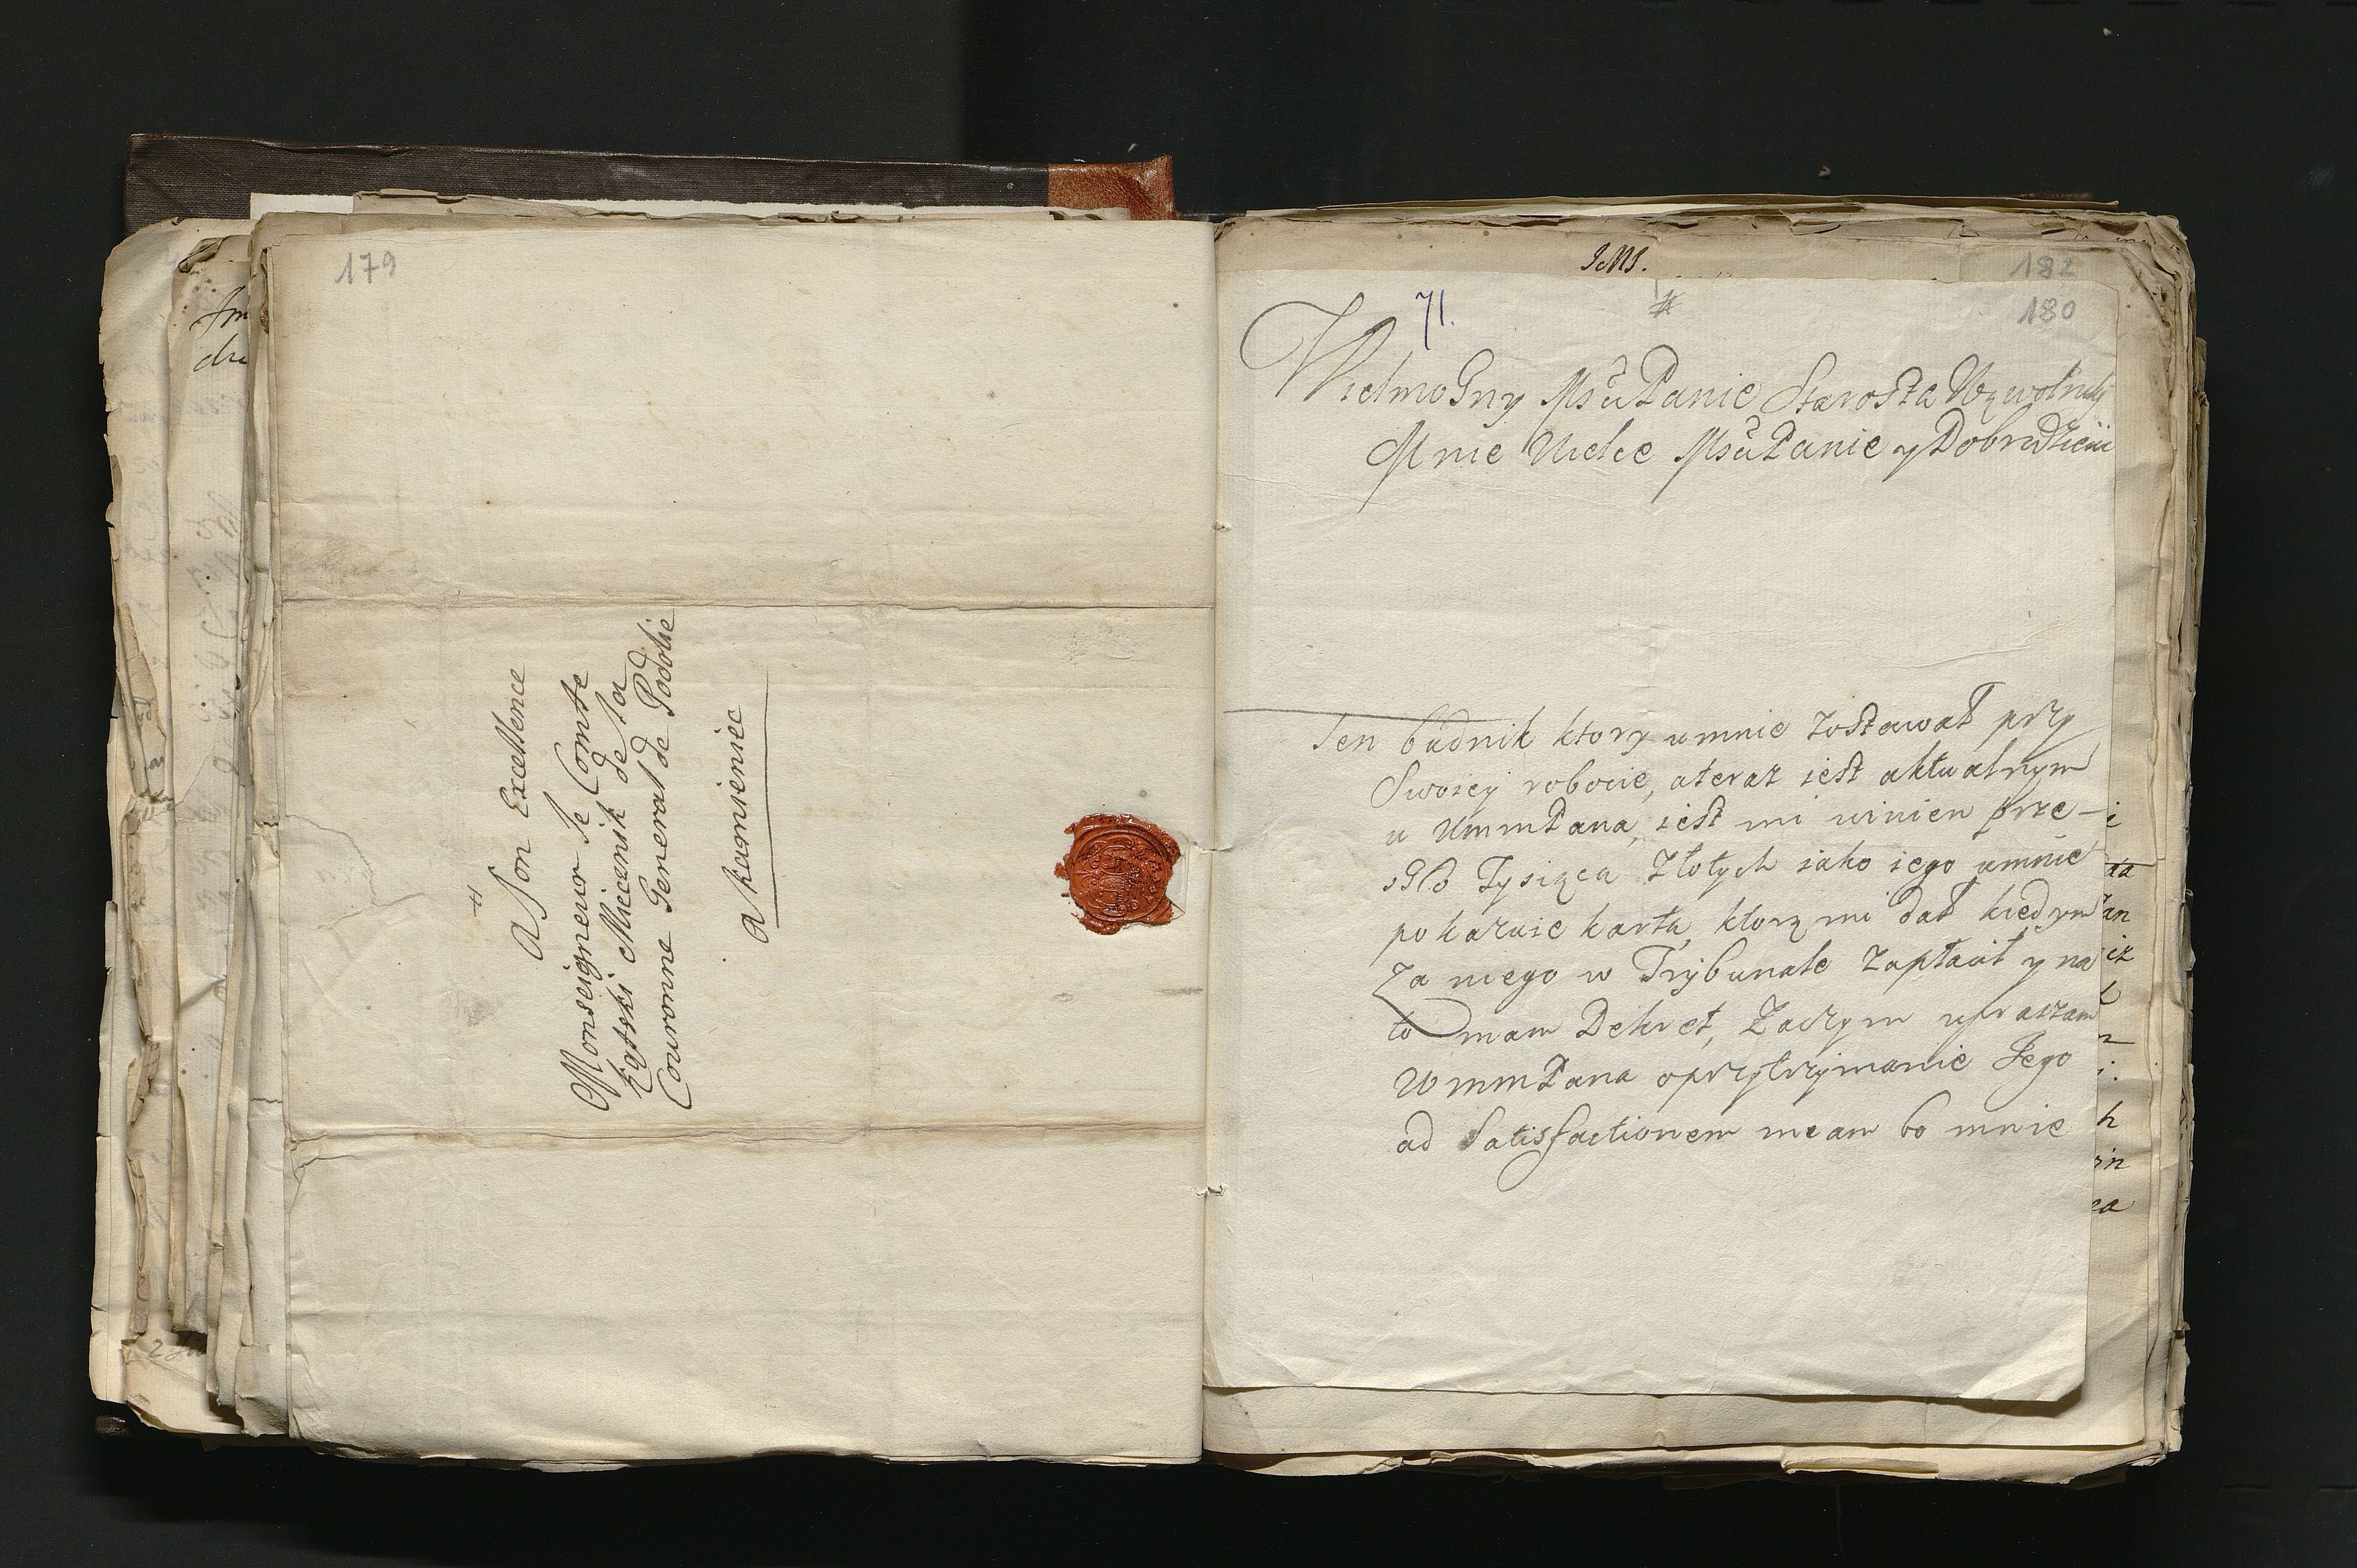 179
A Son Excellence
Monseigneur le Comte
Kątski Miecznik de la
Couronne General de Podolie
a Kamieniec
JMJ.
182
180
71.
Wielmożny Msci Panie Starosta
Mnie Wielce Msci Panie y Dobrodzieiu
Ten budnik ktory umnie zostawał przy
Swoiey robocie, ateraz iest aktualnym
u WmmPana, iest mi winien prze-
szło Tysiąca Złotych iako iego umnie
pokazuie karta, ktorą mi dał kiedym
Za niego w Trybunale zapłacił y na
to mam Dekret, Zaczym upraszam
WmmPana oprzytrzymanie Jego
ad Satisfactionem meam bo mnie